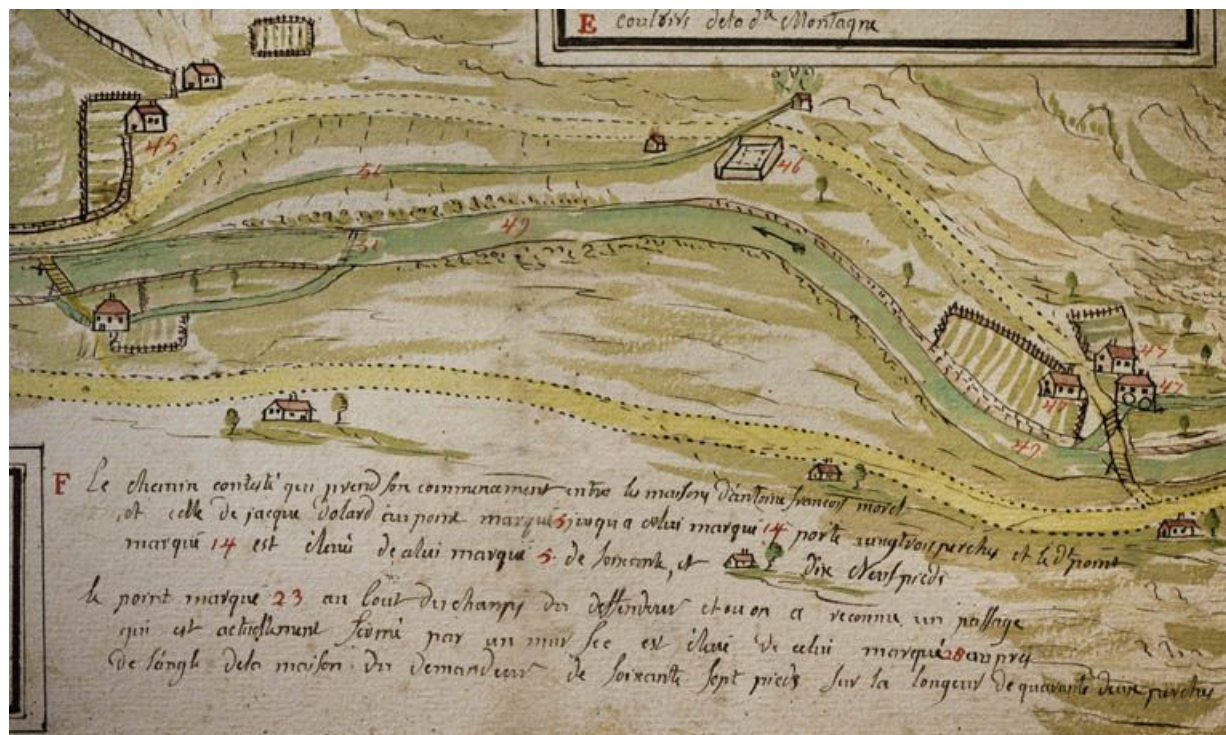 E coulvire dela d.te Montagne
45
51
46
49
51
47
47
47
49
F Le chemin contesté qui prend son commencement entre les maisons d'antoine françois morel
et celle de jacque dolard au point marqué 5 jusqu a celui marqué 14 porte vingt trois perches et le d.t point
marqué 14 est élevé de celui marqué 5 de soixante et Dix Neuf pieds
le point marqué 23 au bout du champs du deffendeur et ou on a reconnu un passage
qui est actuellement fermé par un mur sec est élevé de celui marqué 28 aupres
de l'angle dela maison du demandeur de soixante sept pieds sur la longeur de quarante deux perches